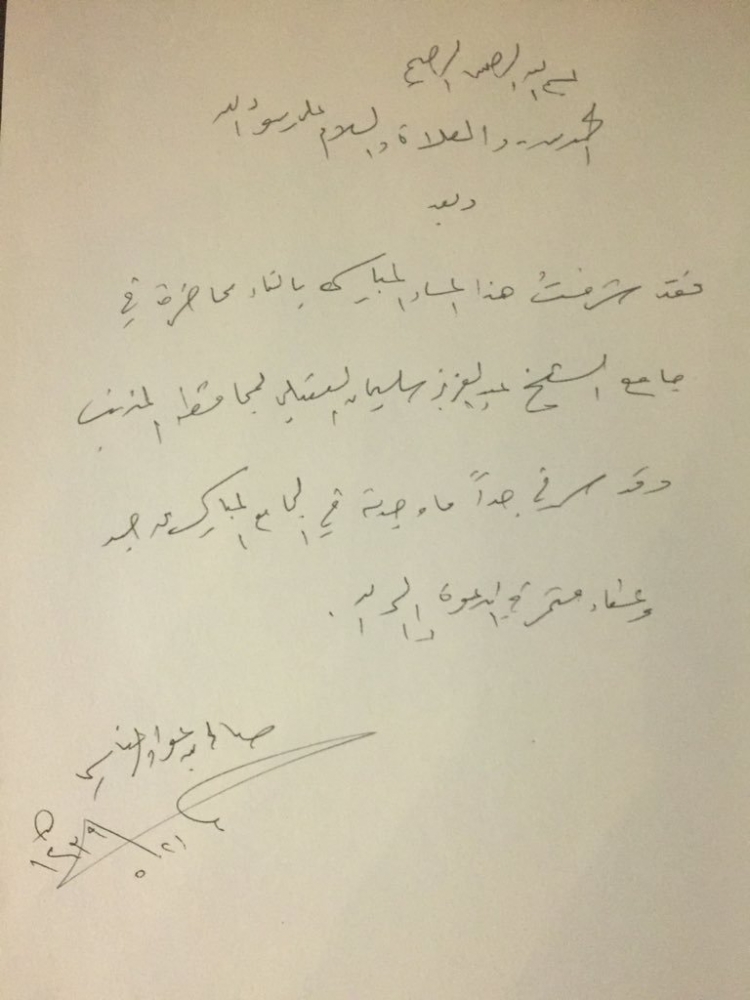 بسم الله الرحمن الرحيم
الحمد لله والصلاة والسلام على رسول الله
وبعد
فقد شرفت هذا المساء المبارك بالقاء محاضرة في
جامع الشيخ عبدالعزيز سليمان العقيلي بمحافظة المذنب
وقد سرني جداً ما وجدته في الجامع المبارك من جهد
وعطاء مستمر في الدعوة إلى الله .
صالح بن عواد المغامسي
٢١ / ٥
١٤٣٩ هـ